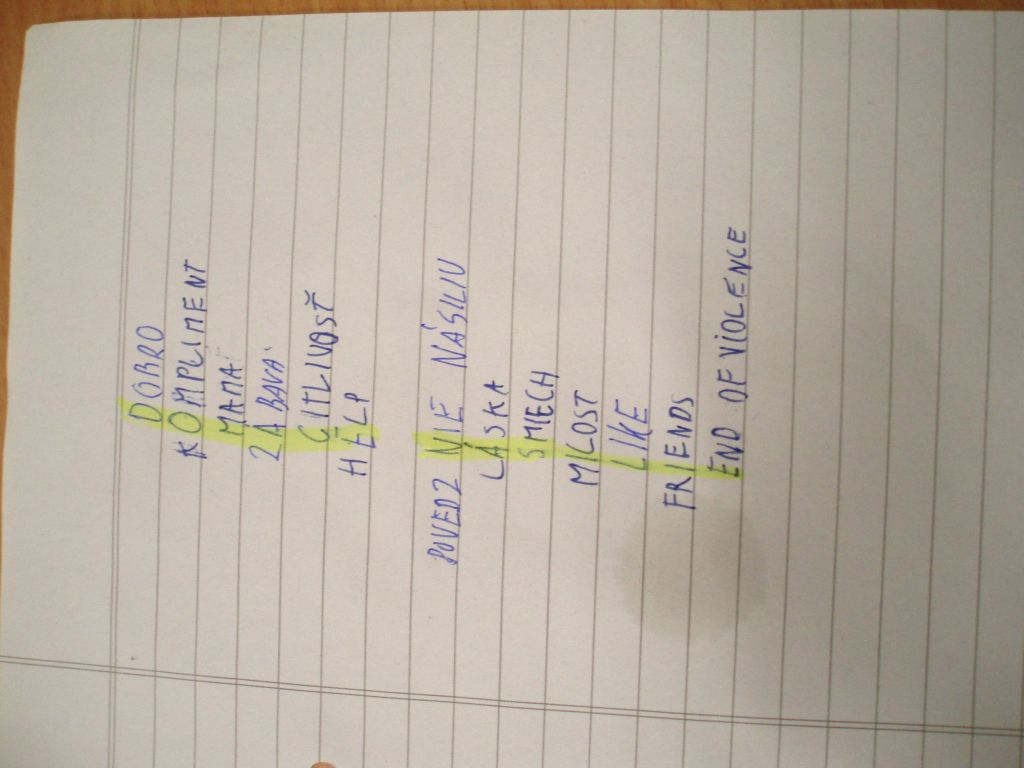 DOBRO
KOMPLIMENT
MAMA
ZÁBAVA
CITLIVOSŤ
HELP
POVEDZ NIE NÁSILIU
LÁSKA
SMIECH
MILOST
LIKE
FRIENDS
END OF VIOLENCE